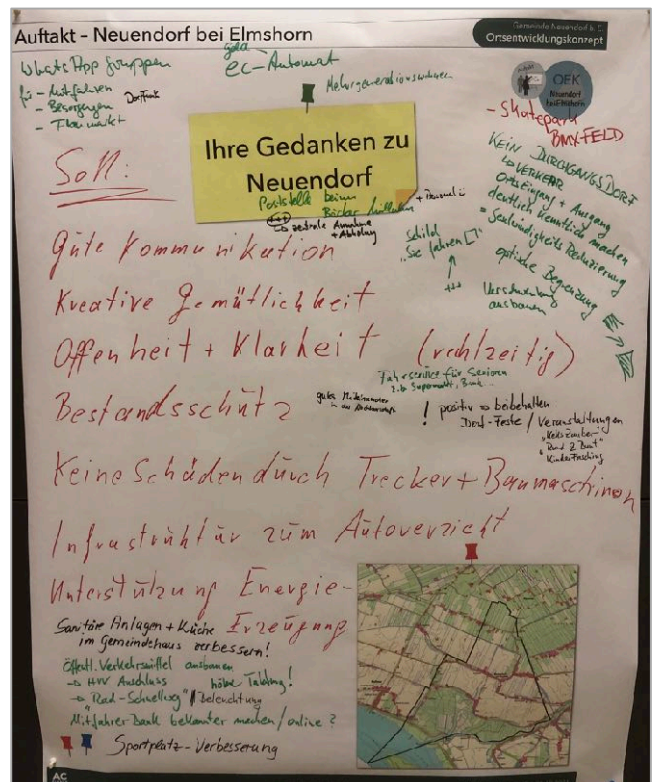 Auftakt - Neuendorf bei Elmshorn
Gemeinde Neuendorf b. E.
Ortsentwicklungskonzept
WhatsApp Gruppen
für - Mitfahren
- Besorgungen
- Flohmarkt
Dorffunk
ec-Automat
Mehrgenerationswohnen
OEK
Neuendorf
bei Elmshorn
- Skatepark
BMX-FELD
Ihre Gedanken zu
Neuendorf
Poststelle beim
Bäcker
+++
→ zentrale Annahme
+ Abholung
KEIN DURCHGANGSDORF
↳ VERKEHR
Ortseingang + Ausgang
deutlich kenntlich machen
= Geschwindigkeits Reduzierung
optische Begrenzung
Schild
"Sie fahren []"
↑
+++
ausbauen
Soll:
Gute Kommunikation
Kreative Gemütlichkeit
Offenheit + Klarheit (rechtzeitig)
Fahrservice für Senioren
z.b Supermarkt, Bank...
Bestandsschutz
gutes Miteinander
in der Nachbarschaft
! positiv → beibehalten
Dorf-Feste / Veranstaltungen
"Kekszauber"
"Rund 2 Bunt"
"Kinderfasching
Keine Schäden durch Trecker + Baumaschinen
Infrastruktur zum Autoverzicht
Unterstützung Energie-
Erzeugung
Sanitäre Anlagen + Küche
im Gemeindehaus verbessern!
Öffentl. Verkehrsmittel ausbauen
→ HVV Anschluss höhere Taktung!
→ "Rad-Schnellweg" / Beleuchtung
"Mitfahrer-Bank bekannter machen / online?
Sportplatz-Verbesserung
AC